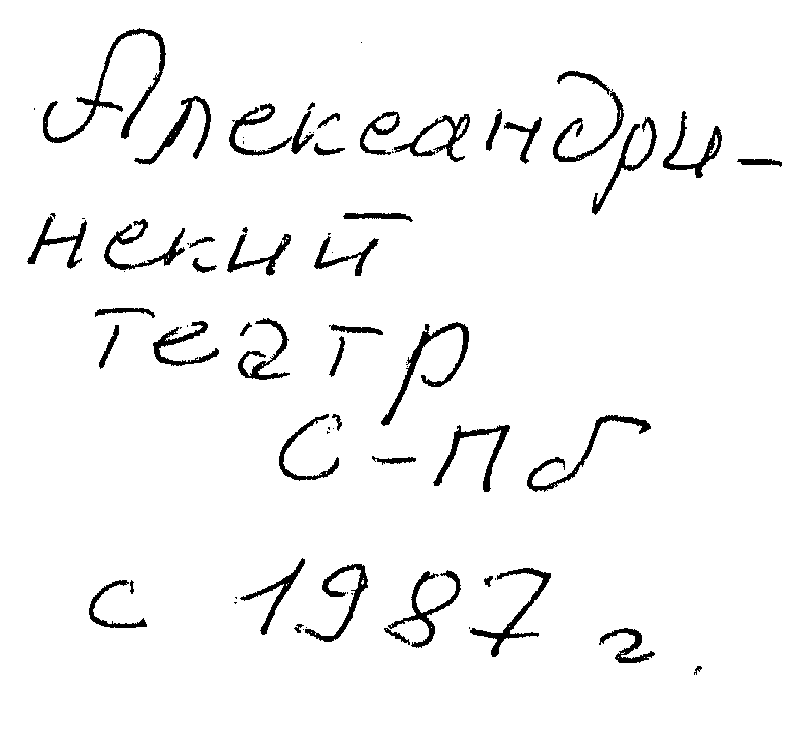 Александри-
нский
театр
С-Пб
с 1987 г.